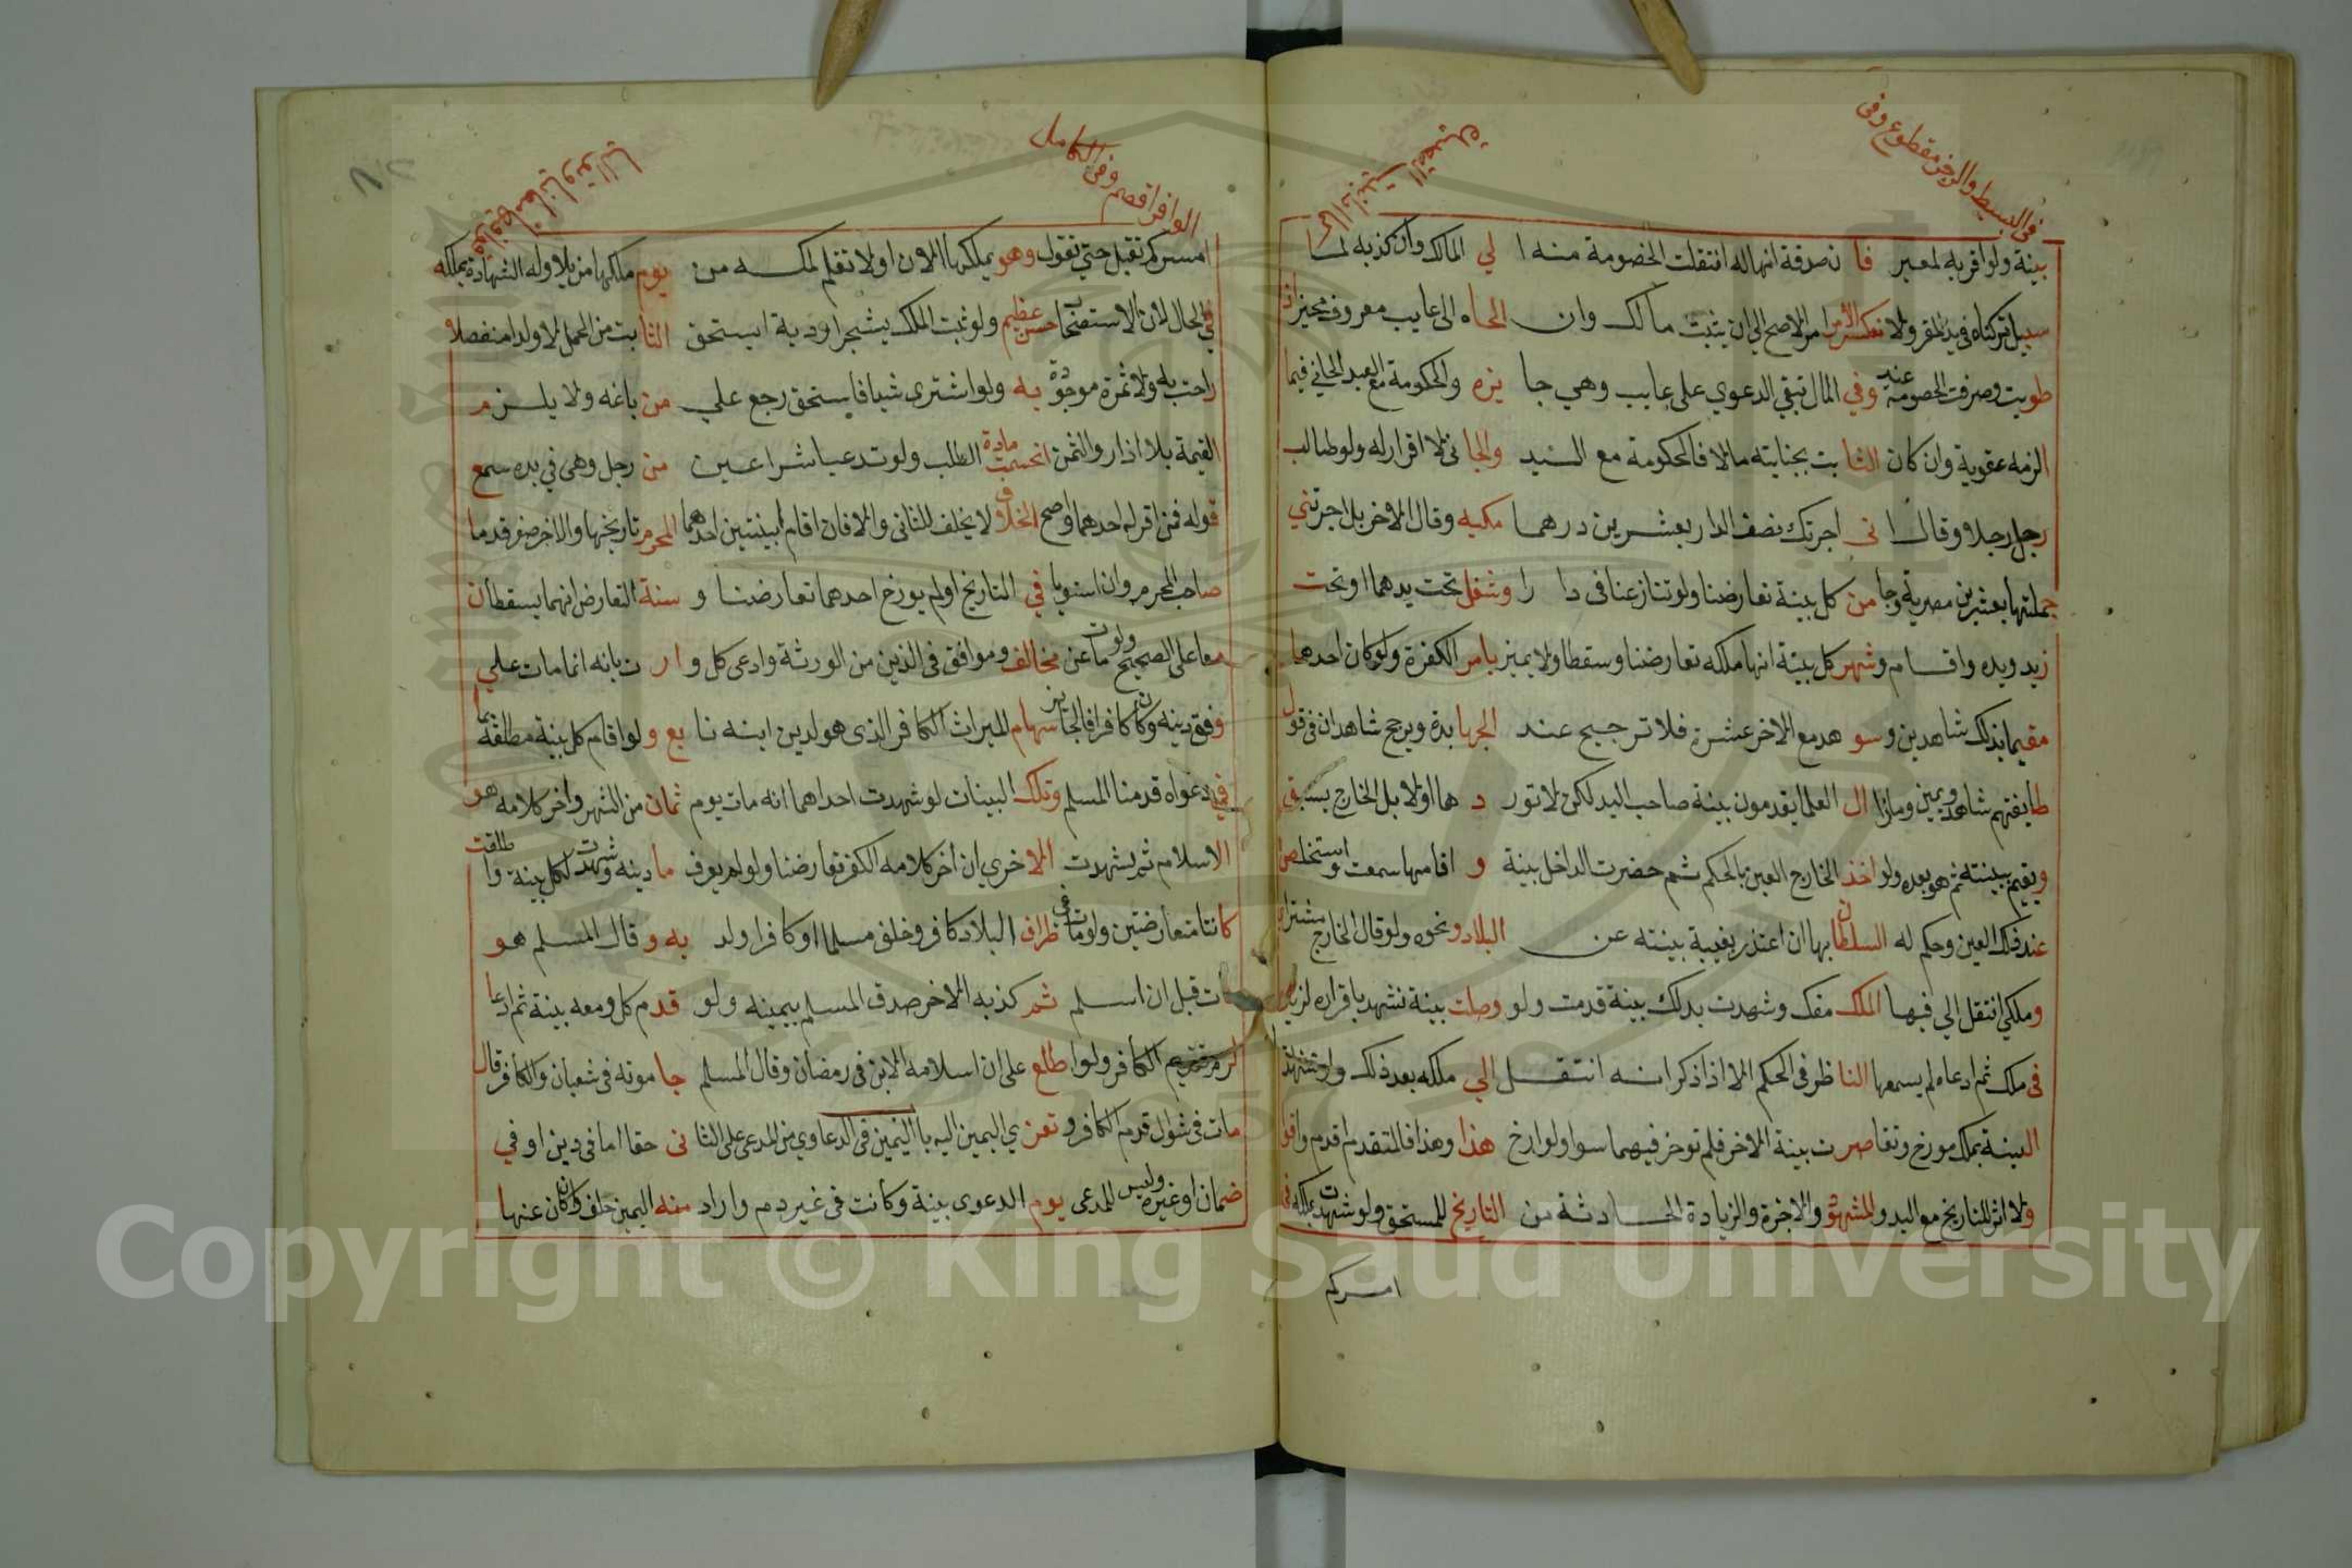 في البسيط والرجز مقطوع وفي
بينة ولو اقر به لمعير فا ن صدقة انها له انتقلت الخصومة منه ا لي المالك وان كذبه لما
سبيل تركناه في يد المقر ولا نعكس الأمر الاصح الي ان يثبت مالك وان الجاه الى غايب معروف
طويت وصرفت الخصومة عنه وفي المال تبقي الدعوي على غايب وهي جا يزه والحكومة مع العبد الجاني فيما
الزمه عقوبة وان كان الثا بت بجنايته مالا فالحكومة مع السيد والجا ني لا اقرار له ولو طالب
رجل رجلا وقال ا ني اجرتك نصف الدار بعشرين درهما مكيه وقال الاخر بل اجرتني
جملتها بعشرين مصرية وجا من كل بينة تعارضنا ولو تنازعنا في دا را وشغل تحت يدهما او تحت
زيد ويده واقام وشهر كل بينة انها ملكه تعارضنا وسقطا ولا يميز بامر الكفرة ولو كان احدهما
مقيما بذلك شاهدين وسو هد مع الاخر عشرة فلا ترجيح عند الجها بذة ويرجح شاهدان في قول
طايفتهم شاهد ويمين وما زا ال العلما يقدمون بينة صاحب اليد لكن لا تور د ها اولا بل الخارج يسبق
ويقيم بينته ثم هو بعده ولو اخذ الخارج العين بالحكم ثم حضرت الداخل بينة و اقامها سمعت واستخلص
عند فك العين وحكم له السلطان بها ان اعتذر بغيبة بينته عن البلاد ونحوه ولو قال الخارج مشتراي
وملكي انتقل الي فيها الملك مفك وشهدت بذلك بينة قدمت ولو وصلت بينة تشهد باقراره لزيد
في ملك ثم ادعاه لم يسمعها النا ظر في الحكم الا اذا ذكر انه انتقل الي ملكه بعد ذلك ولو شهدت
البينة بملك مورخ وتقاصرت بينة الاخر فلم توخر فيهما سوا ولو ارخ هذا وهذا فالمتقدم اقدم وافوا
ولا اثر للتاريخ مع اليد والمشهو والاجرة والزيادة الحادثة من التاريخ للمستحق ولو شهدت بملكه في
امسركم
الوافر اقصم وفي الكامل
امسركم تقبل حتي تقول وهو يملكها الان او لا تعلم لملكه من يوم ملكها مزيلا وله الشهادة بملكه
في الحال لان الاستصحاب حسن عظيم ولو ثبت الملك بشجر او دبة استحق الثا بت من الحمل لا ولدا منفصلا و
راحت به ولا ثمرة موجودة به ولو اشترى شيا فاستحق رجع علي من باعه ولا يلزم
القيمة بلا اذار والثمن انحسمت مادة الطلب ولو تدعيا شرا عين من رجل وهي في يده سمع
قوله فمن اقر له احدهما وصح الخلاف لا يحلف للثاني والا فان اقام ابينتين احدهما المحرم تاريخها والاخر صفر قدما
صاحب المحرم وان استويا في التاريخ او لم يورخ احدهما تعارضنا و سنة التعارض انهما يسقطان
معا على الصحيح ولو مات عن مخالف وموافق في الدين من الورثة وادعى كل وا ر ث بانه انما مات علي
وفق دينه وكان كافرا فالجايز سهام الميراث الكافر الذي هو لدين ابنه تا بع ولو اقام كل بينة مطلقة بما
في دعواه قدمنا المسلم وتلك البينات لو شهدت احداهما انه مات يوم ثمان من الشهر واخر كلامه هو
الاسلام ثم شهدت الا خري ان اخر كلامه الكفر تعارضنا ولو لم يعرف ما دينه وشهدت لكل بينة وا طلقت
كانتا متعارضتين ولو مات في ظراف البلاد كافر وخلف مسلما او كافرا ولد به وقال المسلم هو
مات قبل ان اسلم ثم كذبه الاخر صدق المسلم بيمينه ولو قدم كل ومعه بينة ثم ادعا
لزم تقديم الكافر ولو ا طلع على ان اسلامه الابن في رمضان وقال المسلم جا موته في شعبان والكافر قال
مات في شوال قدم الكافر و تعزي اليمين اليه با اليمين في الدعاوي من المدعى على الثا ني حقا اما في دين او في
ضمان او غيره وليس للمدعى يوم الدعوى بينة وكانت في غير دم واراد منه اليمين حلف وكان عنها
Copyright © King Saud University